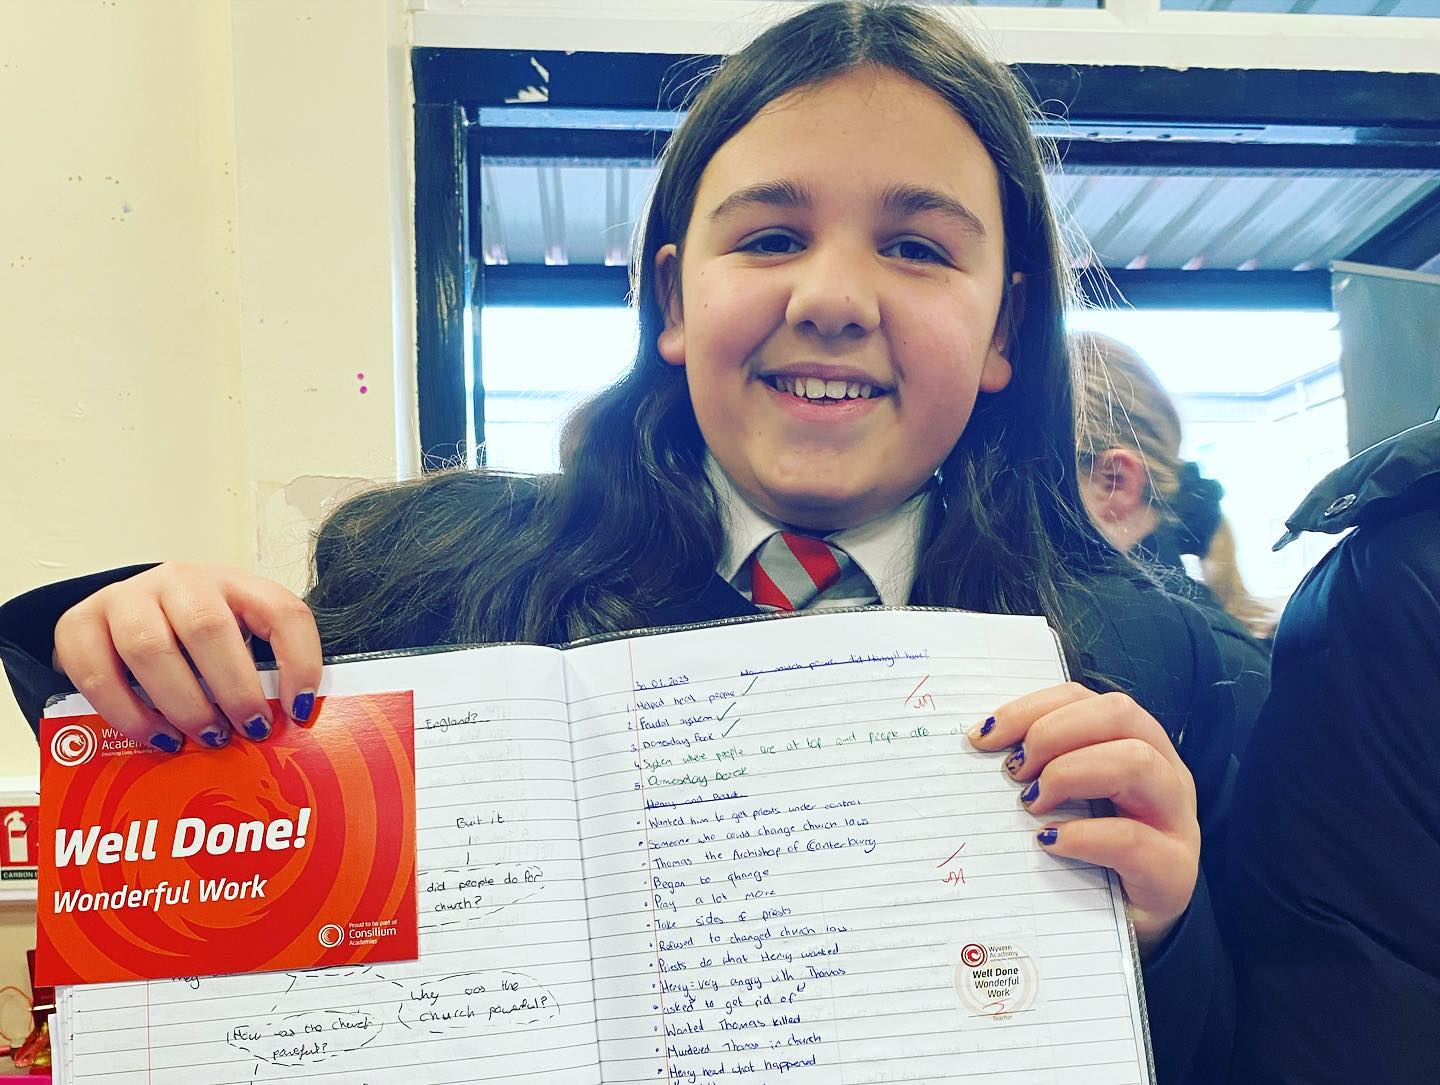 Wyvern
Academy
Well Done!
Wonderful Work
Proud to be part of
Consilium
Academies
CARBON
England?
Built it
did people do for
church?
they
Why was the
church powerful?
How was the church
powerful?
30.01.2023
How much power did Henry II have?
1. Helped heal people
2. Feudal system
3. Domesday Book
4. System where people are at top and people are at
5. Domesday book
Henry and
• Wanted him to get priests under control
• Someone who could change church laws
• Thomas the Archbishop of Canterbury
• Began to change
• Pray a lot more
• Take sides of priests
• Refused to changed church law.
• Priests do what Henry wanted
• Henry = very angry with Thomas
• asked to get rid of
• Wanted Thomas killed
• Murdered Thomas in church
• Henry heard what happened
Wyvern
Academy
Well Done
Wonderful
Work
Teacher